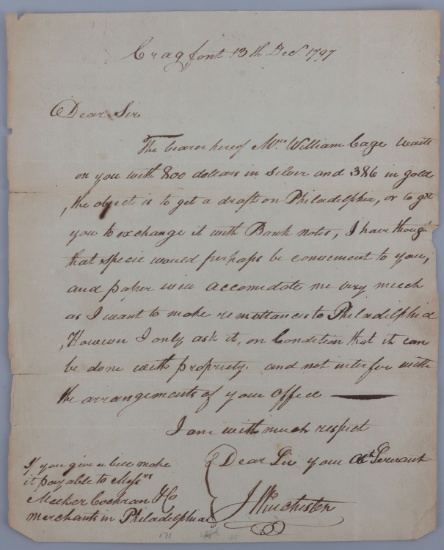 Cragfont 13th Decr 1797
Dear Sir
The bearer hereof Mr. William Cage waits
on you with 800 dollars in silver and 386 in gold
, the object is to get a draft on Philadelphia, or to get
you to exchange it with Bank notes, I have though
that specie would perhaps be convenient to you,
and paper will accomodate me very much
as I want to make remittances to Philadelphia
, However I only ask it, on Condition that it can
be done with propriety. and not interfere with
the arrangements of your Office
I am with much respect
Dear Sir your Obt Servant
J Winchester
If you give a bill make
it payable to Messrs
Meeker Cochran & Co
merchants in Philadelphia